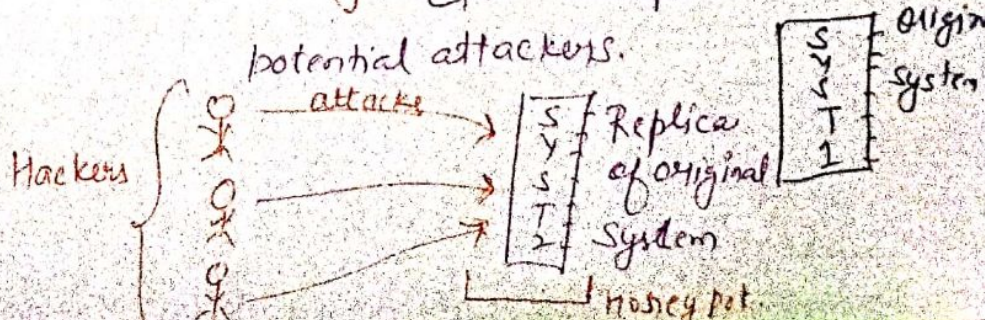 potential attackers.
attacks
Hackers
SYST2
Replica
of original
System
Honey pot.
SYST1
System